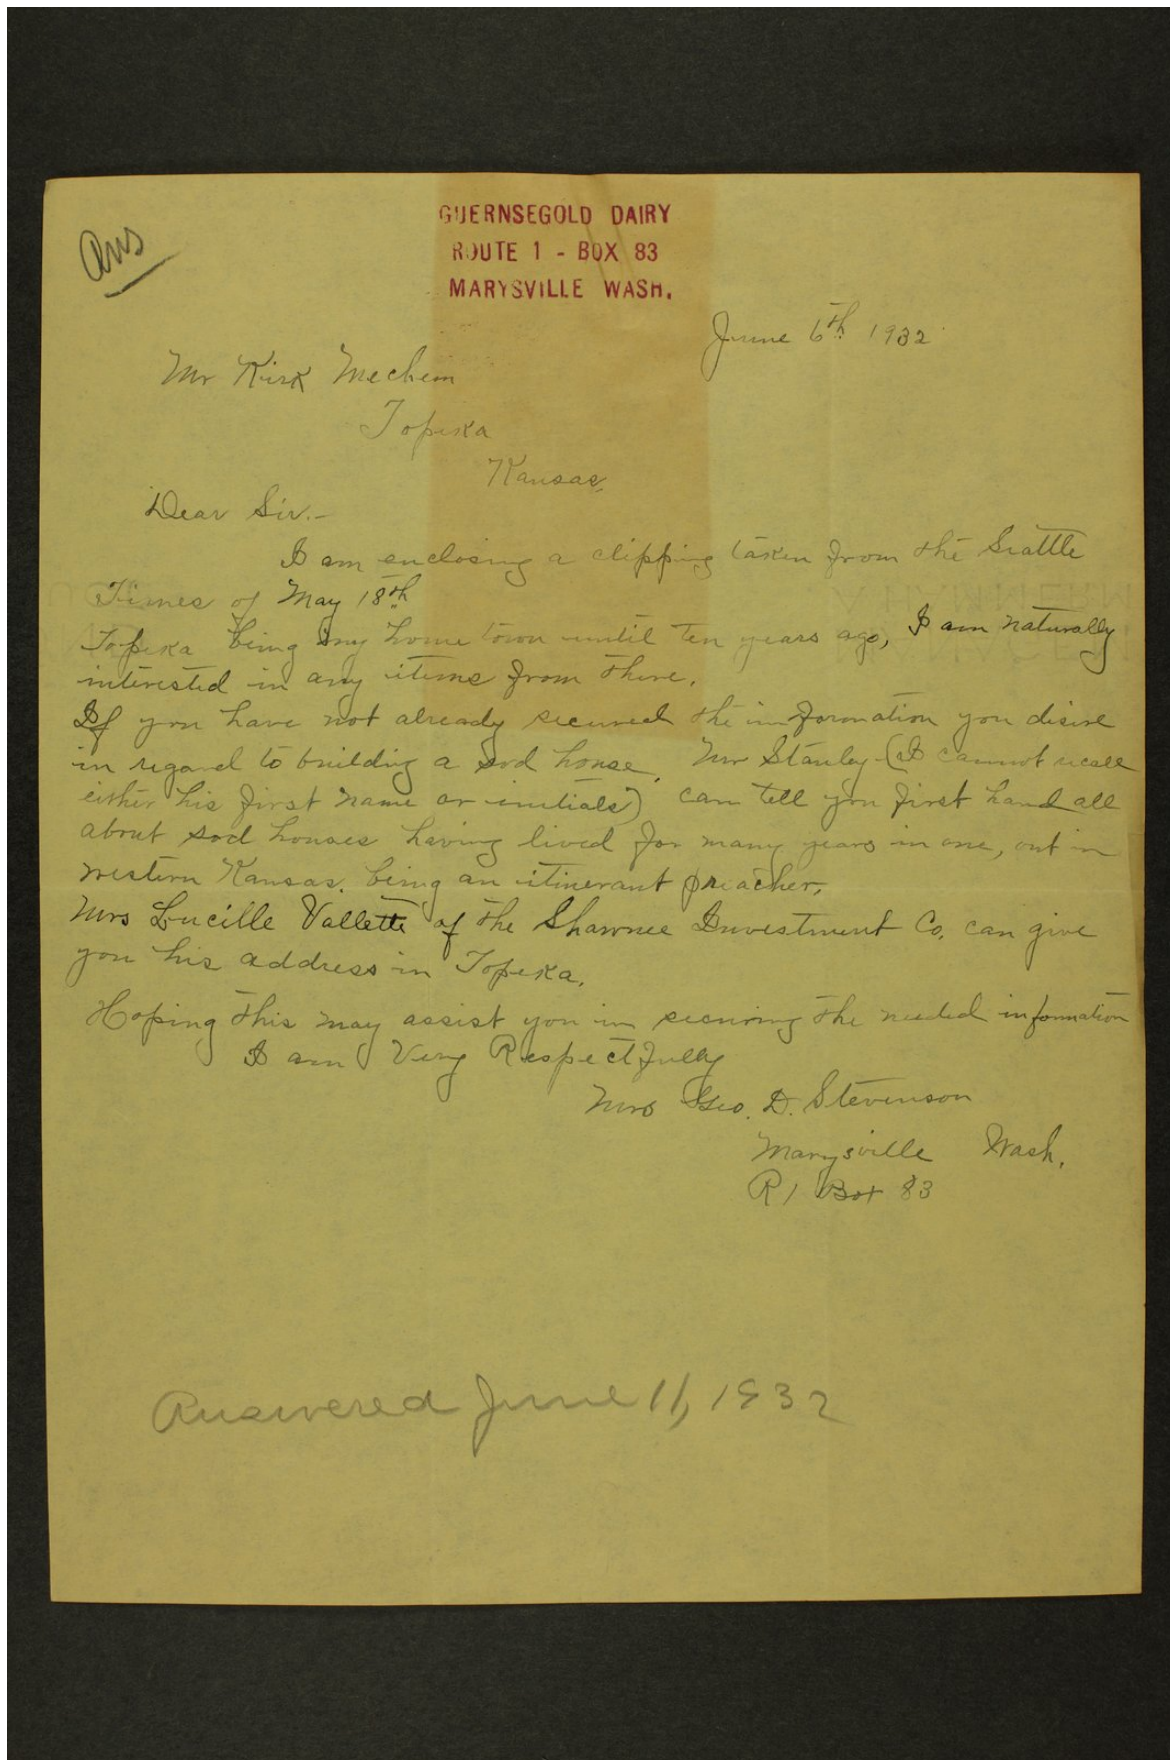 Ans
GUERNSEGOLD DAIRY
ROUTE 1 - BOX 83
MARYSVILLE WASH.
June 6th 1932
Mr Kirk Mechem
Topeka
Kansas,
Dear Sir.-
I am enclosing a clipping taken from the Seattle
Times of May 18th
Topeka being my home town until ten years ago, I am naturally
interested in any items from there.
If you have not already secured the information you disire
in regard to building a sod house, Mr Stanley (I cannot recall
either his first name or initials) can tell you first hand all
about sod houses having lived for many years in one, out in
western Kansas, being an itinerant preacher.
Mrs Lucille Vallette of the Shawnee Investment Co. can give
you his address in Topeka.
Hoping this may assist you in securing the needed information
I am Very Respectfully
Mrs Geo. D. Stevenson
Marysville Wash.
R1 Box 83
Answered June 11, 1932